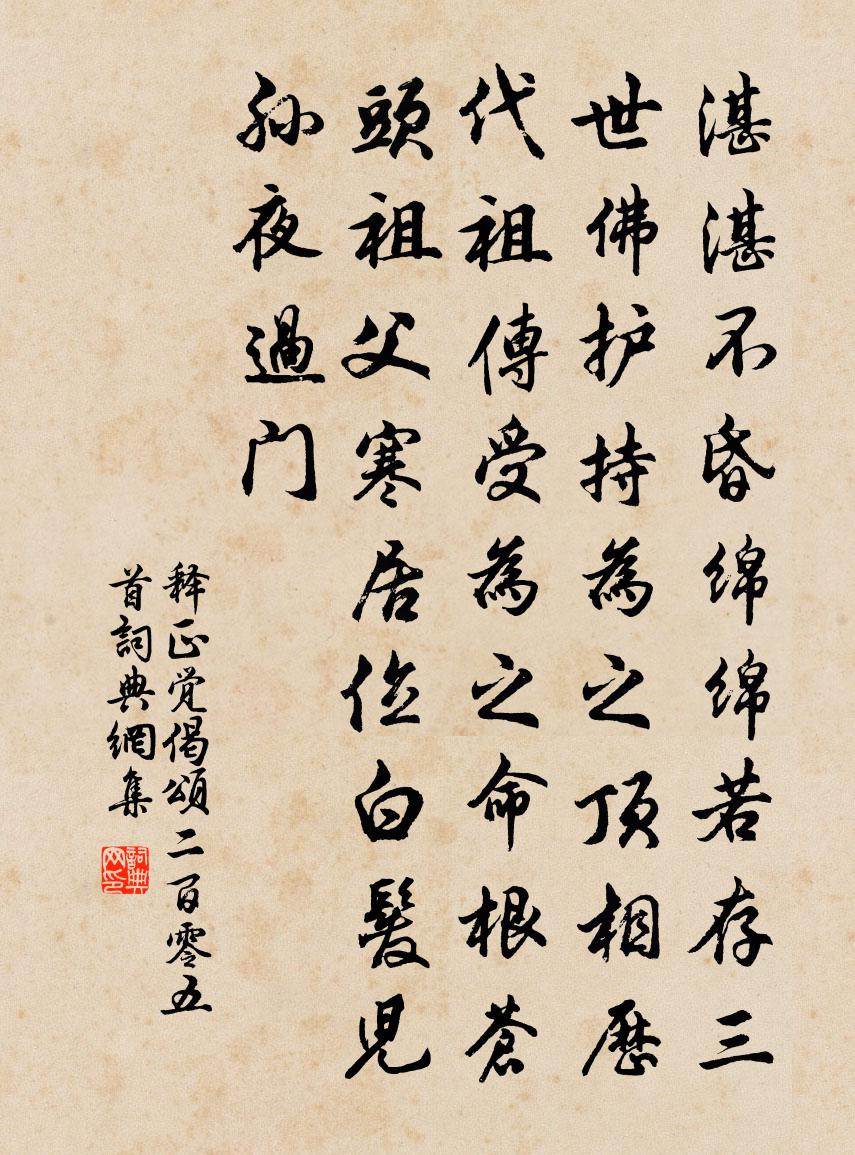 湛湛不昏绵绵若存三
世佛护持為之顶相歷
代祖傳受為之命根蒼
頭祖父寒居位白髮児
孙夜過门
释正觉偈頌二百零五
首詞典網集
詞典网印